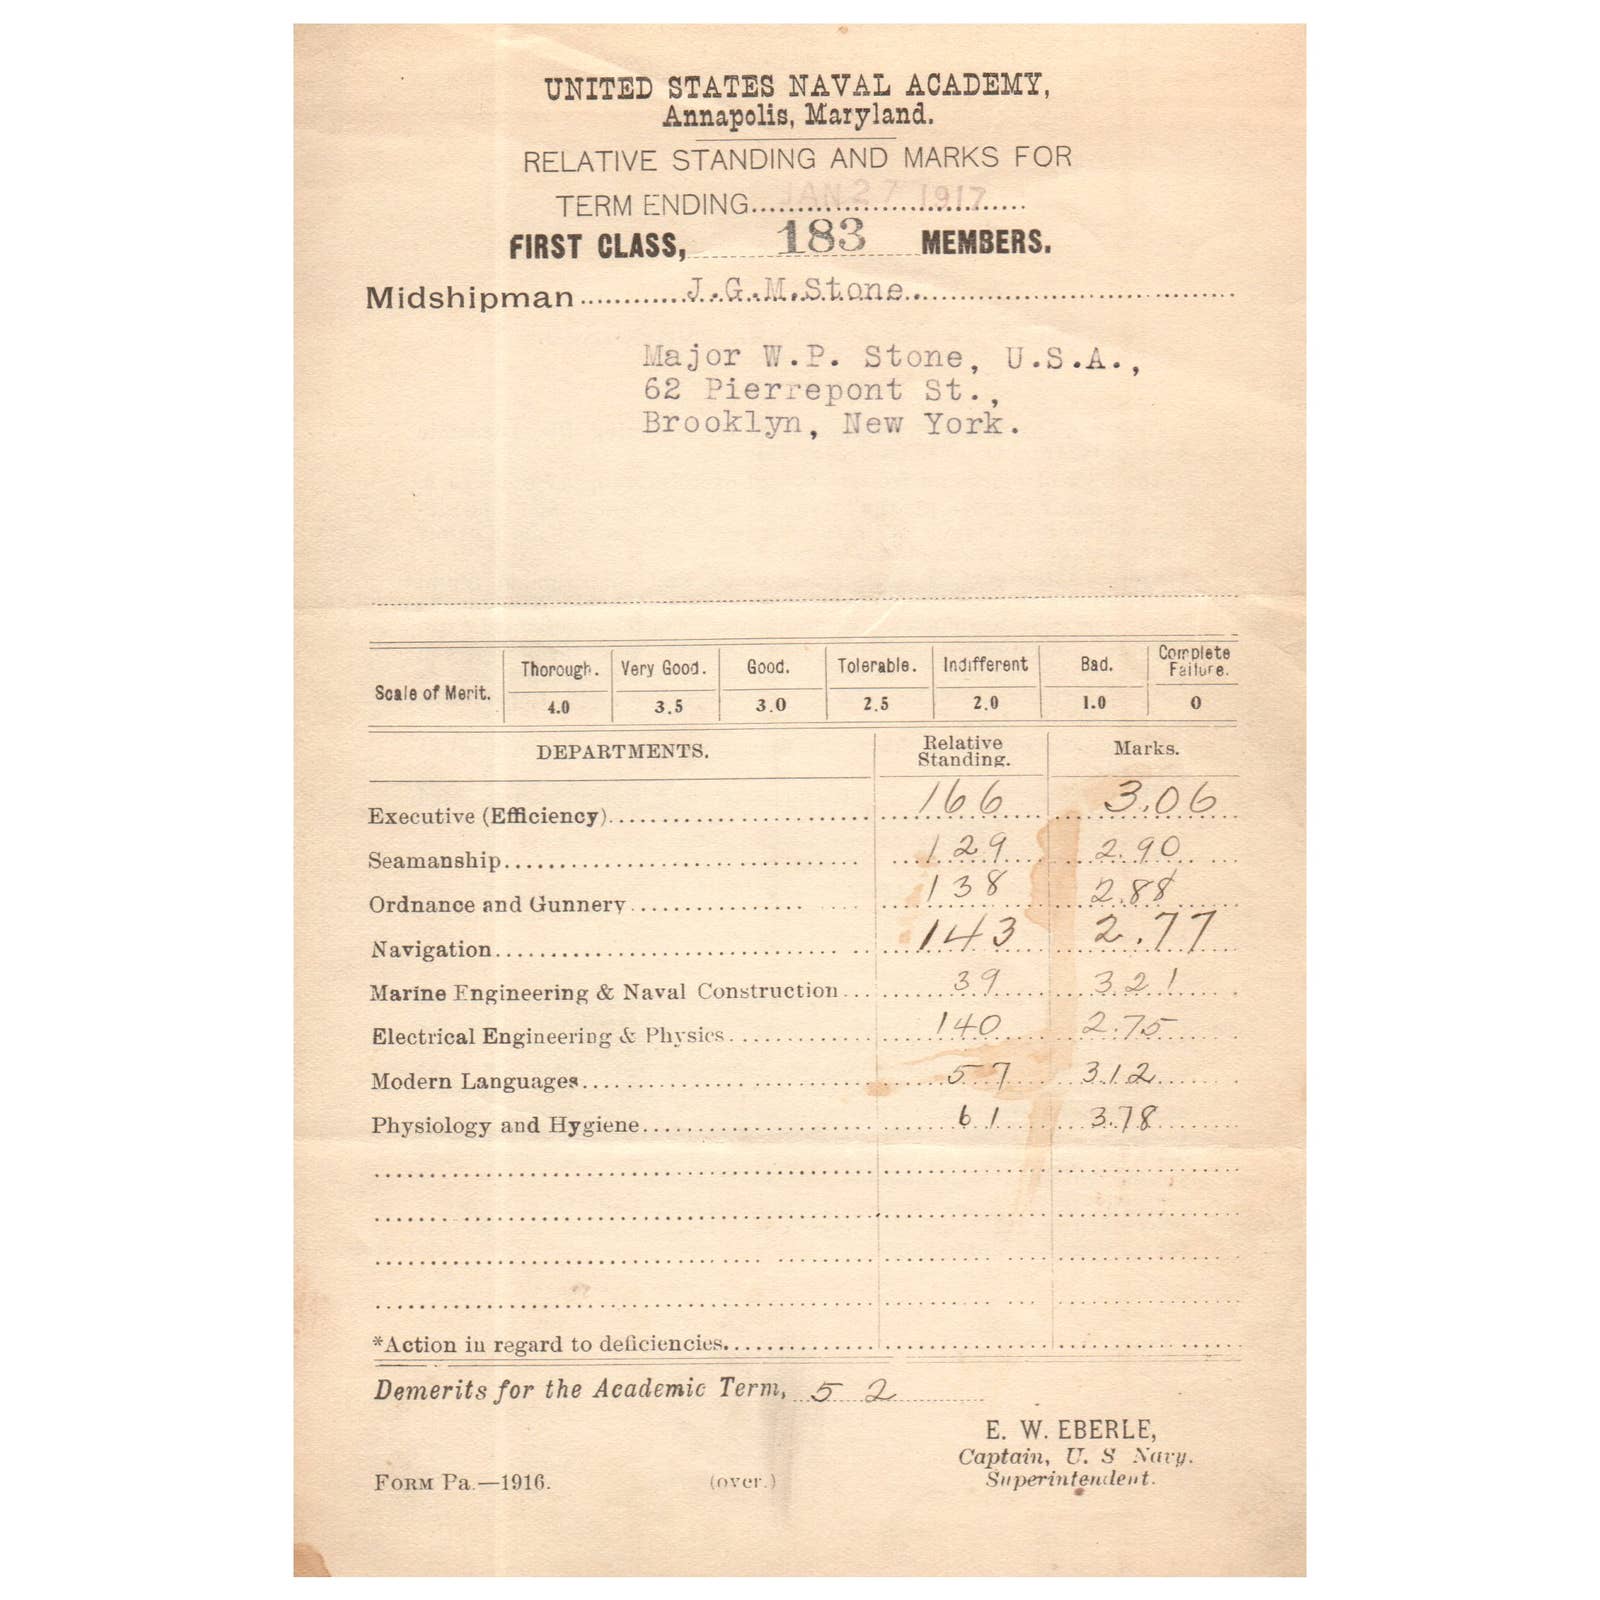 UNITED STATES NAVAL ACADEMY,
Annapolis, Maryland.
RELATIVE STANDING AND MARKS FOR
TERM ENDING JAN 27 1917
FIRST CLASS, 183 MEMBERS.
Midshipman J.G.M.Stone.
Major W.P. Stone, U.S.A.,
62 Pierrepont St.,
Brooklyn, New York.
Scale of Merit. Thorough. Very Good. Good. Tolerable. Indifferent Bad. Complete Failure.
4.0 3.5 3.0 2.5 2.0 1.0 0
DEPARTMENTS. Relative Standing. Marks.
Executive (Efficiency) 166 3.06
Seamanship 129 2.90
Ordnance and Gunnery 138 2.88
Navigation 143 2.77
Marine Engineering & Naval Construction 39 3.21
Electrical Engineering & Physics 140 2.75
Modern Languages 57 3.12
Physiology and Hygiene 61 3.78
*Action in regard to deficiencies.
Demerits for the Academic Term, 52
E. W. EBERLE,
Captain, U. S Navy.
Superintendent.
FORM Pa.—1916. (over.)